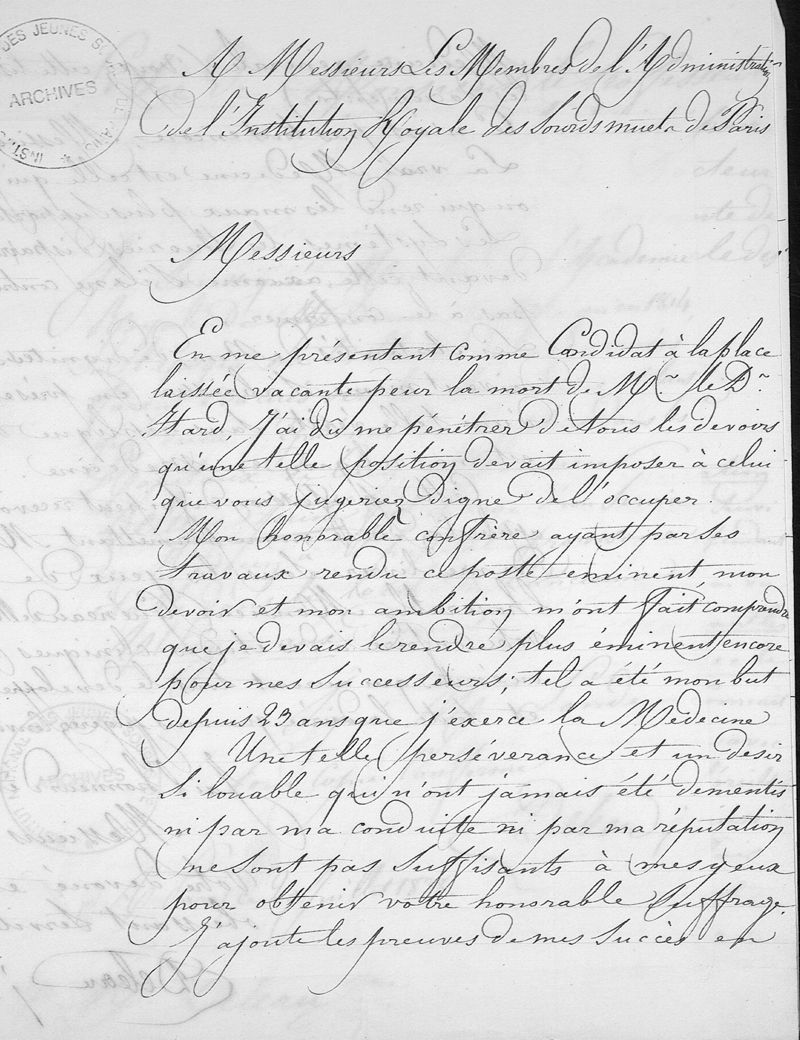 DES JEUNES S
ARCHIVES
INST
A Messieurs Les Membres de l'Administration
de l'Institution Royale des Sourds muets de Paris
Messieurs
En me présentant comme Candidat à la place
laissée vacante peur la mort de Mr. le Dr.
Itard, J'ai dû me pénétrer de tous les devoirs
qu'une telle position devait imposer à celui
que vous jugeriez digne de l'occuper.
Mon honorable confrère ayant par ses
travaux rendu ce poste eminent, mon
devoir et mon ambition m'ont fait comprendre
que je devais le rendre plus éminent encore
pour mes successeurs; tel a été mon but
depuis 23 ans que j'exerce la Medecine
Une telle persévérance et un desir
si louable qui n'ont jamais été dementis
ni par ma conduite ni par ma réputation
ne sont pas suffisants à mes yeux
pour obtenir votre honorable suffrage.
J'ajoute les preuves de mes succès en